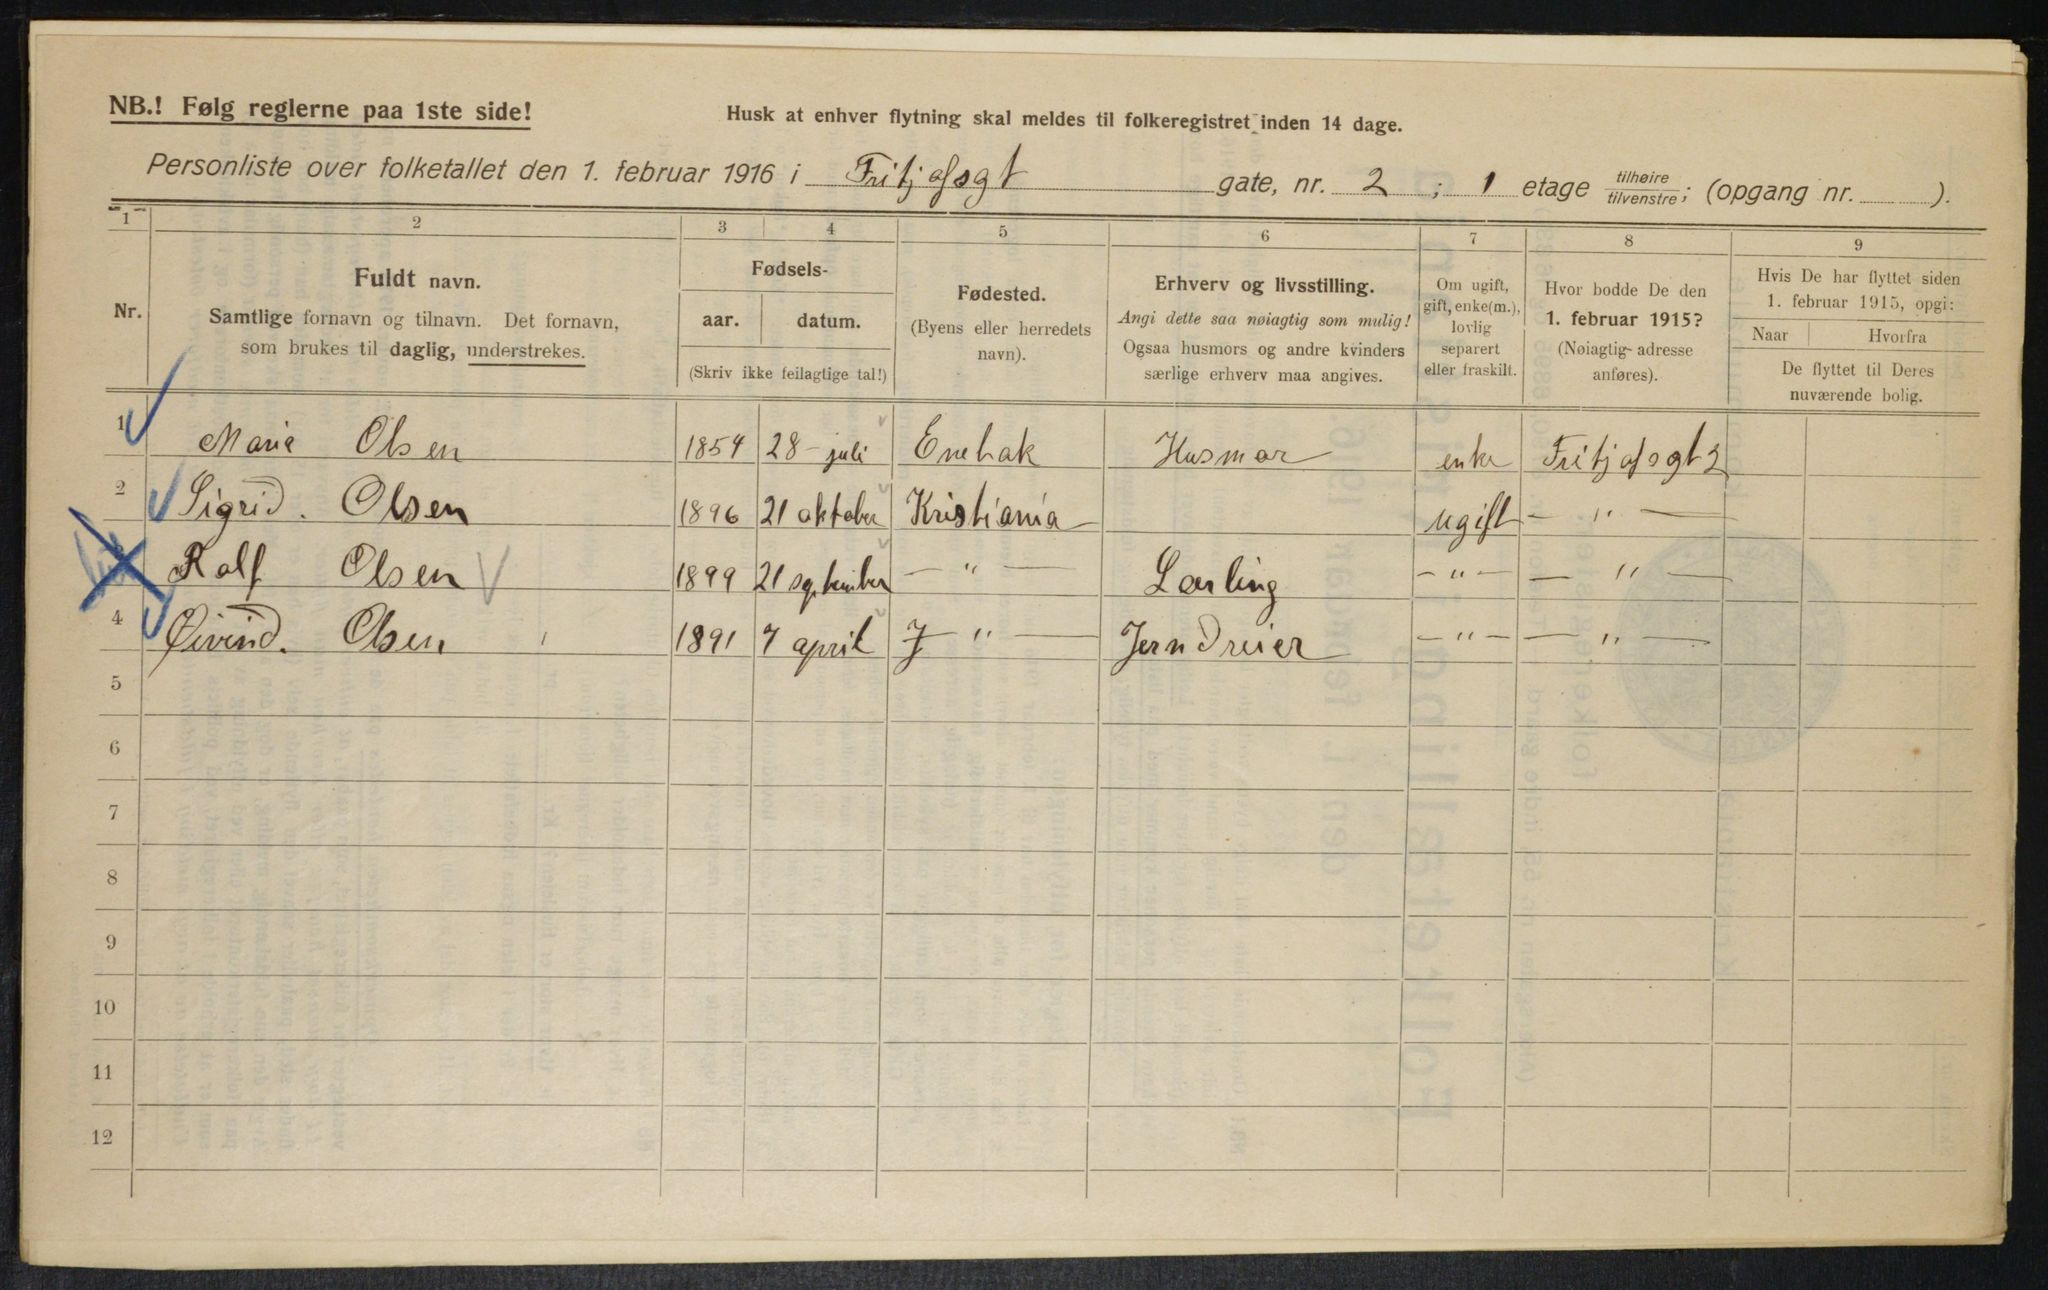 NB.! Følg reglerne paa 1ste side!
Husk at enhver flytning skal meldes til folkeregistret inden 14 dage.
Personliste over folketallet den 1. februar 1916 i Fritjofsgt gate, nr. 2; 1 etage tilhøire/tilvenstre; (opgang nr. ).
1 2 3 4 5 6 7 8 9
Nr.
Fuldt navn.
Samtlige fornavn og tilnavn. Det fornavn,
som brukes til daglig, understrekes.
Fødsels-
aar. datum.
(Skriv ikke feilagtige tal!)
Fødested.
(Byens eller herredets
navn).
Erhverv og livsstilling.
Angi dette saa nøiagtig som mulig!
Ogsaa husmors og andre kvinders
særlige erhverv maa angives.
Om ugift,
gift, enke(m.),
lovlig
separert
eller fraskilt.
Hvor bodde De den
1. februar 1915?
(Nøiagtig adresse
anføres).
Hvis De har flyttet siden
1. februar 1915, opgi:
Naar Hvorfra
De flyttet til Deres
nuværende bolig.
1 Maria Olsen 1854 28 - juli Enebak Husmor enke Fritjofsgt 2
2 Sigrid. Olsen 1896 21 oktober Kristiania ugift — " —
Rolf Olsen 1899 21 september — " — Lærling — " — — " —
4 Øivind. Olsen 1891 7 april — " — Jerndreier — " — — " —
5
6
7
8
9
10
11
12